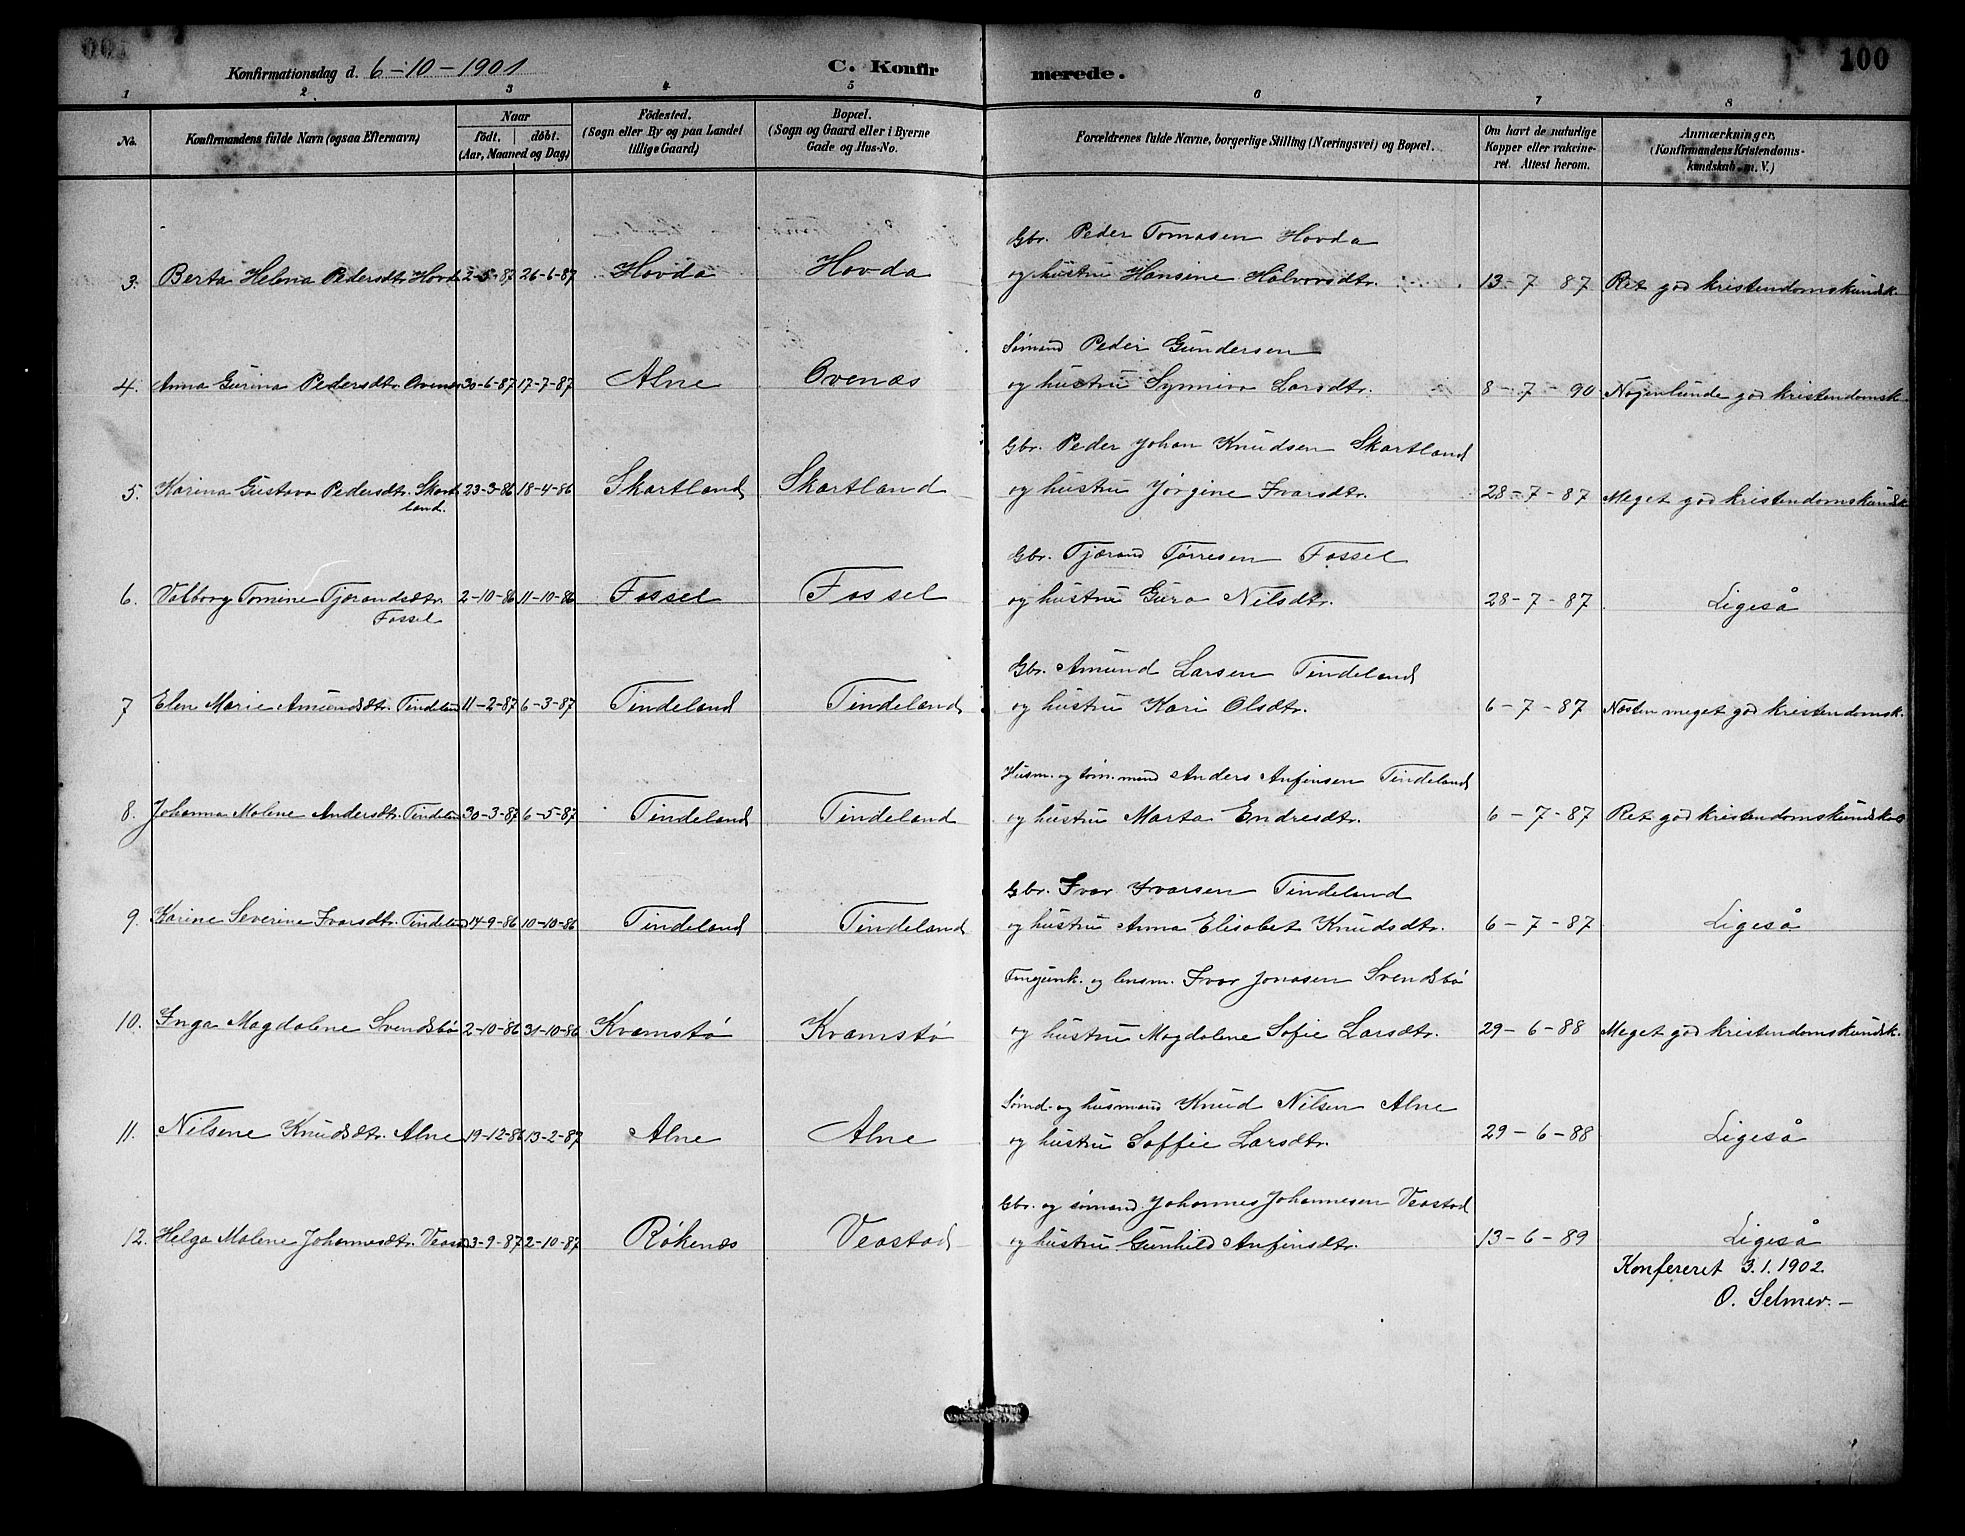 100
Konfirmationsdag d. 6-10-1901 C. Konfirmerede.
1 2 3 4 5 6 7 8
No. Konfirmandens fulde Navn (ogsaa Efternavn) Naar födt. döbt. (Aar, Maaned og Dag) Födested. (Sogn eller By og paa Landet tillige Gaard) Bopæl. (Sogn og Gaard eller i Byerne Gade og Hus-No. Forældrenes fulde Navne, borgerlige Stilling (Næringsvei) og Bopæl. Om havt de naturlige Kopper eller vakcineret. Attest herom. Anmærkninger. (Konfirmandens Kristendomskundskab. m. V.)
Gbr. Peder Tomasen Hovda
3. Berta Helena Pedersdtr. Hovda 2-5-87 26-6-87 Hovda Hovda og hustru Hansine Halvorsdtr. 13-7-87 Ret god kristendomskundsk.
Sømand Peder Gundersen
4. Anna Gurina Pedersdtr. Ovenæs 30-6-87 17-7-87 Alne Ovenæs og hustru Synniva Larsdtr. 8-7-90 Nogenlunde god kristendomsk.
Gbr. Peder Johan Knudsen Skartland
5. Karina Gustava Pedersdtr. Skartland. 23-3-86 18-4-86 Skartland Skartland og hustru Jørgine Ivarsdtr. 28-7-87 Meget god kristendomskundsk.
Gbr. Tjærand Tørresen Fossel
6. Valborg Tomine Tjærandsdtr. Fossel 2-10-86 11-10-86 Fossel Fossel og hustru Guro Nilsdtr. 28-7-87 Ligeså
Gbr. Amund Larsen Tindeland
7 Elen Marie Amundsdtr. Tindeland 11-2-87 6-3-87 Tindeland Tindeland og hustru Kari Olsdtr. 6-7-87 Næsten meget god kristendomsk.
Husm. og tøm.mand Anders Anfinsen Tindeland
8. Johanna Malene Andersdtr. Tindeland 30-3-87 6-5-87 Tindeland Tindeland og hustru Marta Endresdtr. 6-7-87 Ret god kristendomskundsk.
Gbr. Ivar Ivarsen Tindeland
9. Karine Severine Ivarsdtr. Tindeland 14-9-86 10-10-86 Tindeland Tindeland og hustru Anna Elisabet Knudsdtr. 6-7-87 Ligeså
og lensm. Ivar Jonasen Svendsbø
10. Inga Magdalene Svendsbø 2-10-86 31-10-86 Kramstø Kramstø og hustru Magdalene Sofie Larsdtr. 29-6-88 Meget god kristendomskundsk.
Sømd. og husmand Knud Nilsen Alne
11. Nilsene Knudsdtr. Alne 19-12-86 13-2-87 Alne Alne og hustru Soffie Larsdtr. 29-6-88 Ligeså
Gbr. og sømand Johannes Johannesen Veastad
12. Helga Malene Johannesdtr. Veastad 3-9-87 2-10-87 Røkenæs Veastad og hustru Gunhild Anfinsdtr. 13-6-89 Ligeså
Konfereret 3.1.1902.
O. Selmer.-